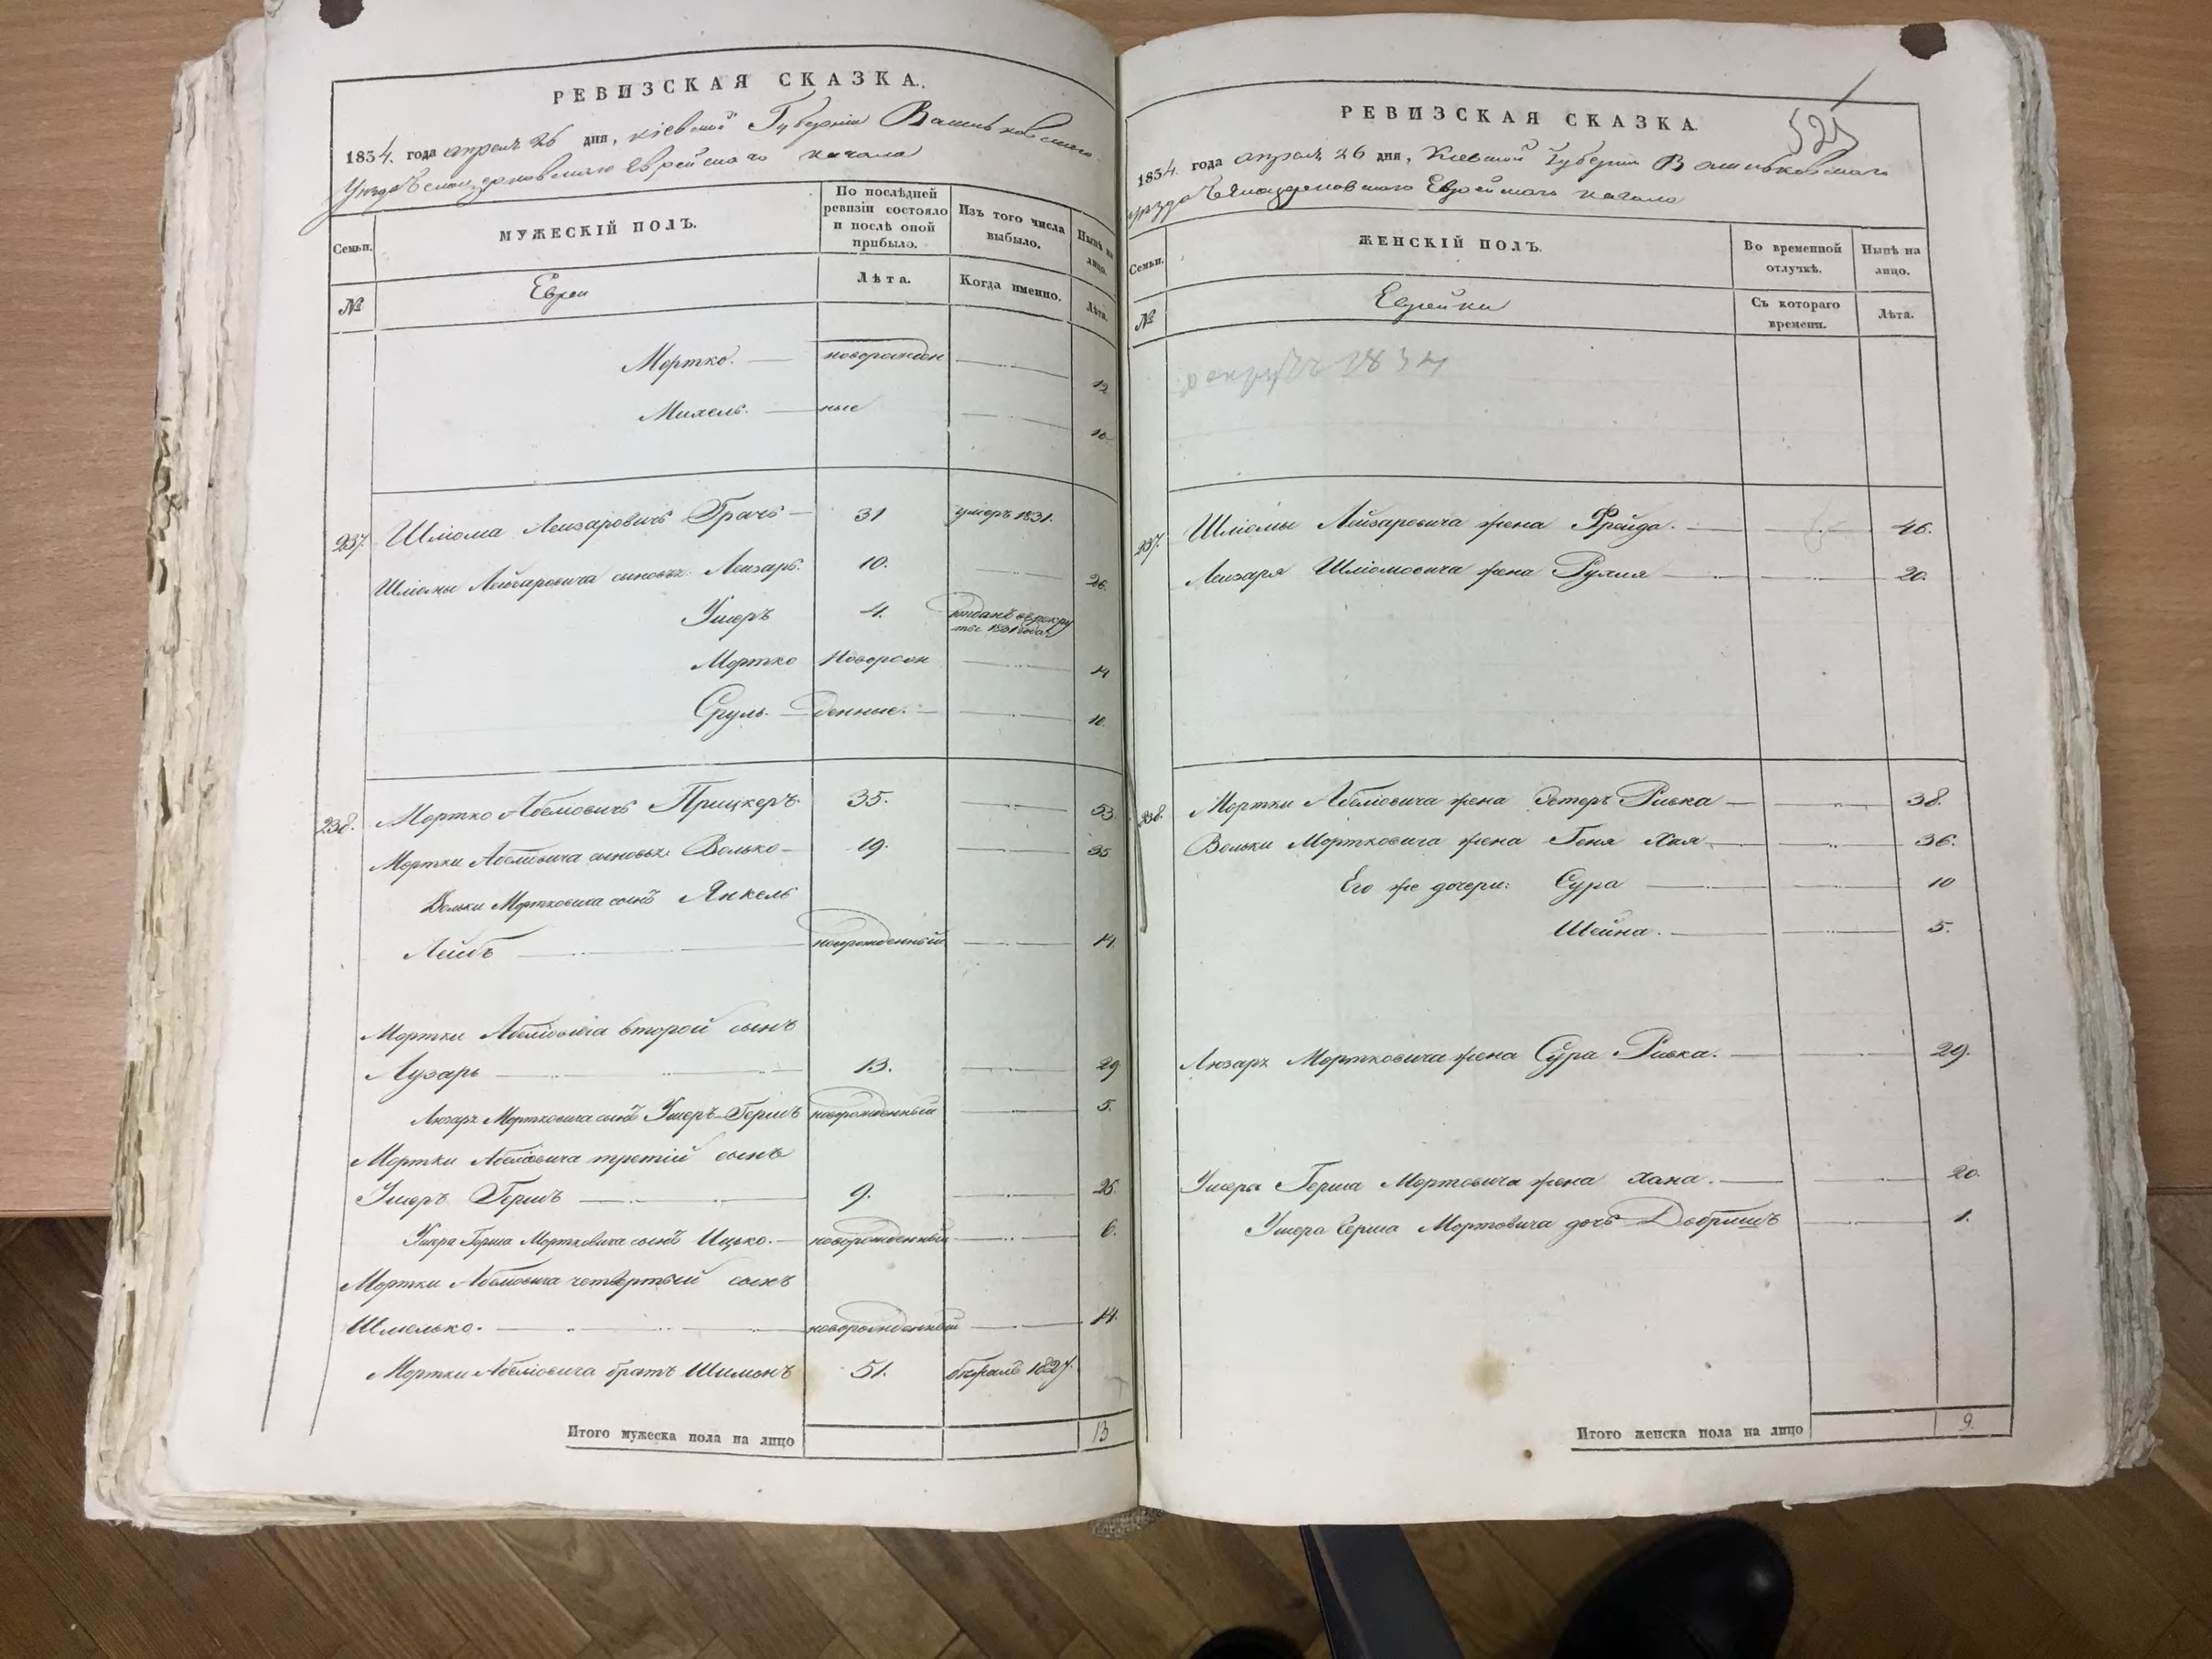 РЕВИЗСКАЯ СКАЗКА.
1834. года апреля 26 дня, Кіевской Губерніи Васильковскаго
Уезда Белоцерковскаго Еврейскаго кагала
Семьи.
МУЖЕСКІЙ ПОЛЪ.
По послѣдней ревизіи состояло и послѣ оной прибыло.
Изъ того числа выбыло.
Нынѣ на лицо.
№
Евреи
Лѣта.
Когда именно.
Лѣта.
Мортко. новорожден 12
Михель. ные 10
237. Шліома Лейзаровичъ Грачъ 31 умеръ 1831.
Шліомы Лейзаровича сыновья: Лейзаръ. 10. 26.
Ушеръ 4. отданъ в рекру
ты 1831 года
Мортко Новорож 14
Сруль. денные. 10.
238. Мортко Абеліовичъ Прицкеръ. 35. 53
Мортки Абеліовича сыновья: Волько 19. 35
Вольки Мортковича сынъ Янкель
Лейбъ новорожденный 14.
Мортки Абеліовича второй сынъ
Лузаръ 13. 29
Люзаря Мортковича сынъ Ушеръ-Гершъ новорожденный 5.
Мортки Абеліовича третій сынъ
Ушеръ Гершъ 9. 25.
Ушера Герша Мортковича сынъ Ицько. новорожденный 6.
Мортки Абеліовича четвертый сынъ
Шмелько. новорожденный 14.
Мортки Абеліовича братъ Шимонъ 51. 1827.
Итого мужеска пола на лицо 13
РЕВИЗСКАЯ СКАЗКА.
525
1834. года апреля 26 дня, Кіевской Губерніи Васильковскаго
уезда Белоцерковскаго Еврейскаго кагала
Семьи.
ЖЕНСКІЙ ПОЛЪ.
Во временной отлучкѣ.
Нынѣ на лицо.
№
Еврейки
Съ котораго времени.
Лѣта.
1834
237. Шліомы Лейзаровича жена Фрейда. 46.
Лейзаря Шліомовича жена Рухля 20.
238. Мортки Абеліовича жена Эстеръ Ривка 38.
Вольки Мортковича жена Геня Хая 36.
Его же дочери: Сура 10
Шейна. 5.
Люзаря Мортковича жена Сура Ривка. 29.
Ушера Герша Мортовича жена Хана. 20.
Ушера Герша Мортовича дочь Добришъ 1.
Итого женска пола на лицо 9.